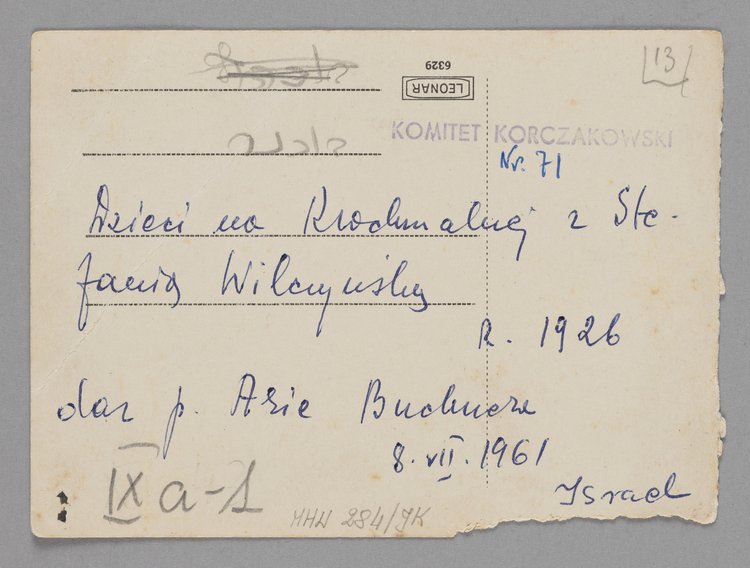 13
6329
LEONAR
KOMITET KORCZAKOWSKI
Nr. 71
Dzieci na Krochmalnej z Ste-
fanią Wilczyńską
R. 1926
dar p. Arie Buchnera
8.VII.1961
Israel
IX a-1
MHW 284/JK